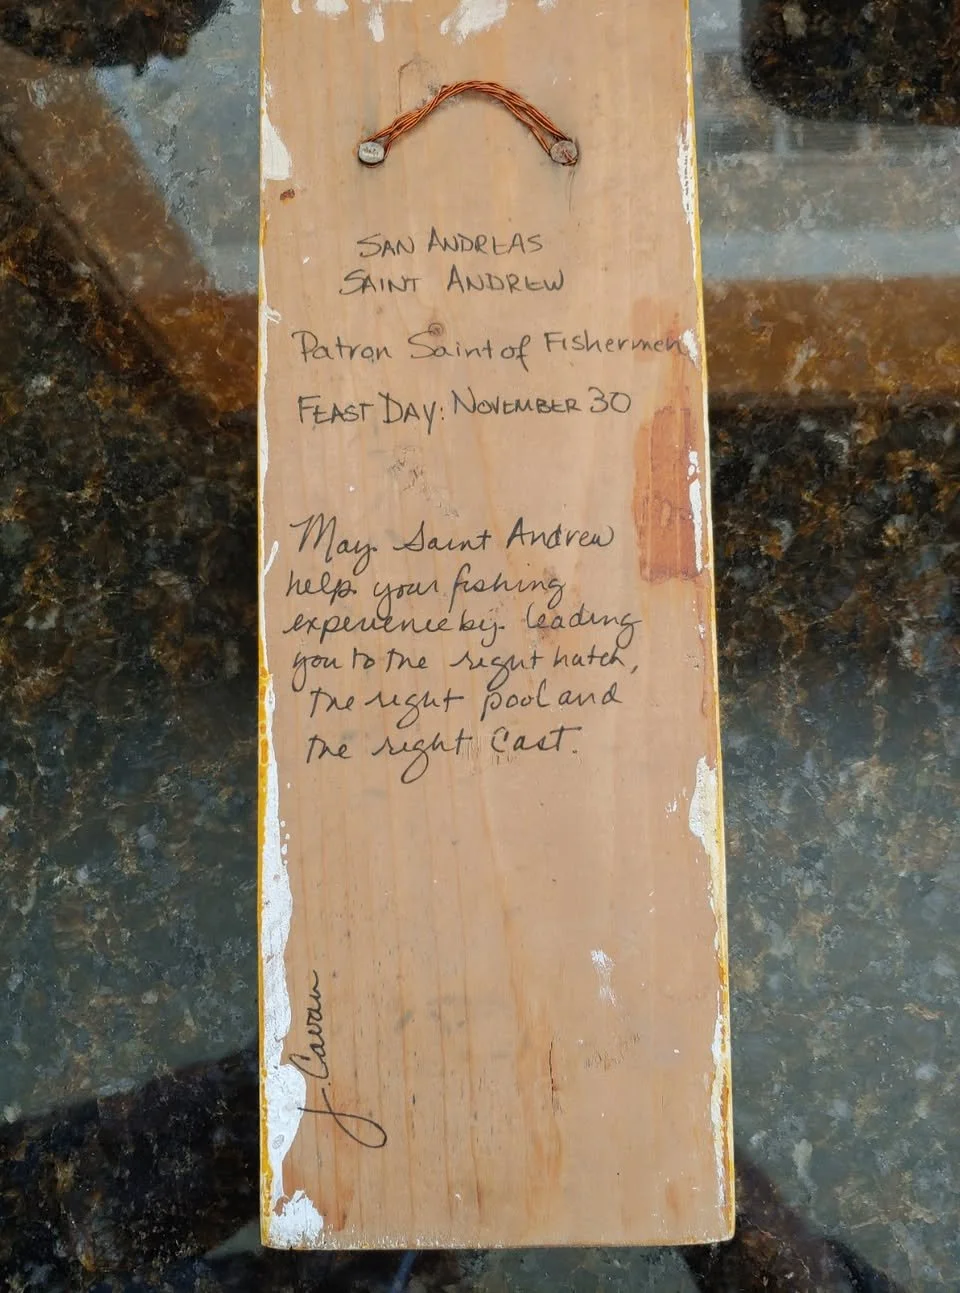 SAN ANDREAS
SAINT ANDREW
Patron Saint of Fishermen
FEAST DAY: NOVEMBER 30
May Saint Andrew
help your fishing
experience by leading
you to the right hatch,
the right pool and
the right cast.
J. Cavan